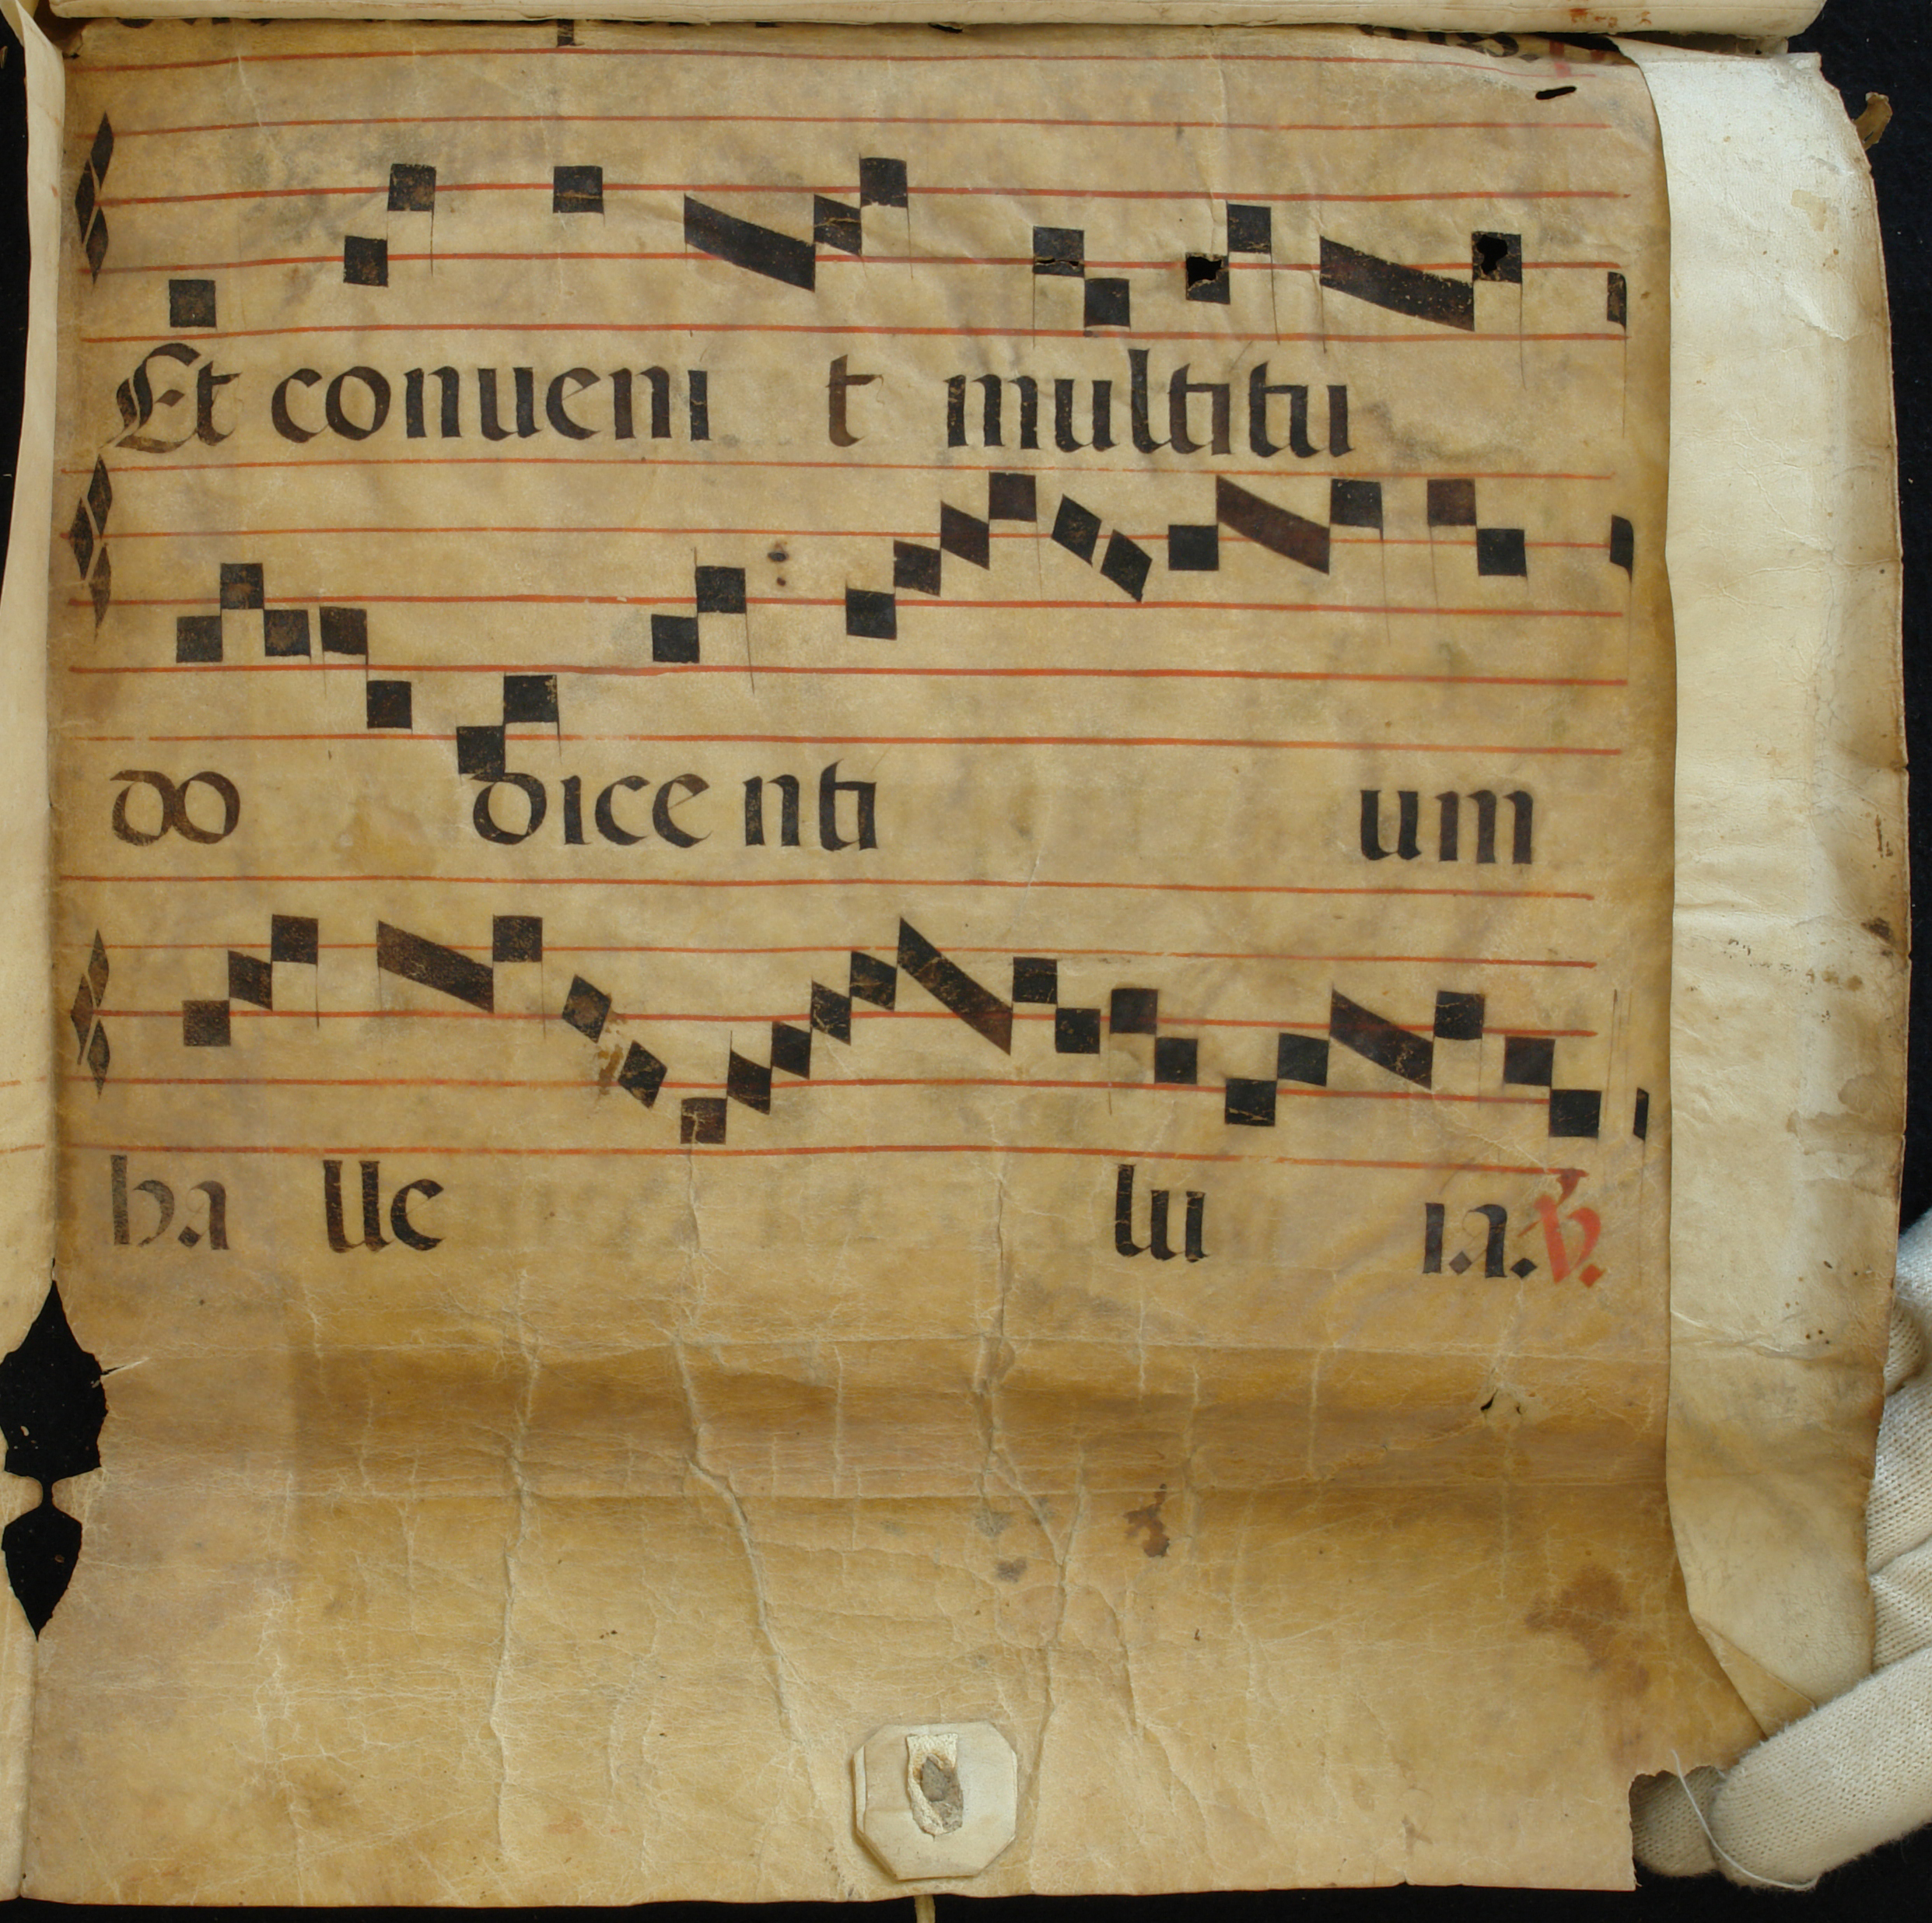 Et conueni t multitu
do dice nti um
ha lle lui ia. ℣.